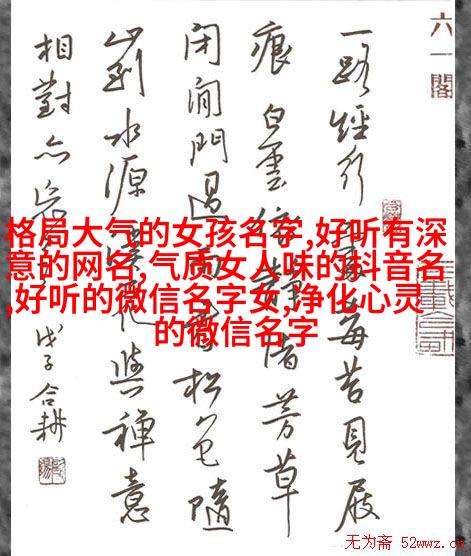 六一閣
一路經行處莓苔見屐
痕白雲依靜渚芳草
閉閒門過雨看松色隨
山到水源溪花與禪意
相對亦忘言
戊子合耕
格局大气的女孩名字,好听有深
意的网名,气质女人味的抖音名
,好听的微信名字女,净化心灵
的微信名字
无为斋 52wwz.c